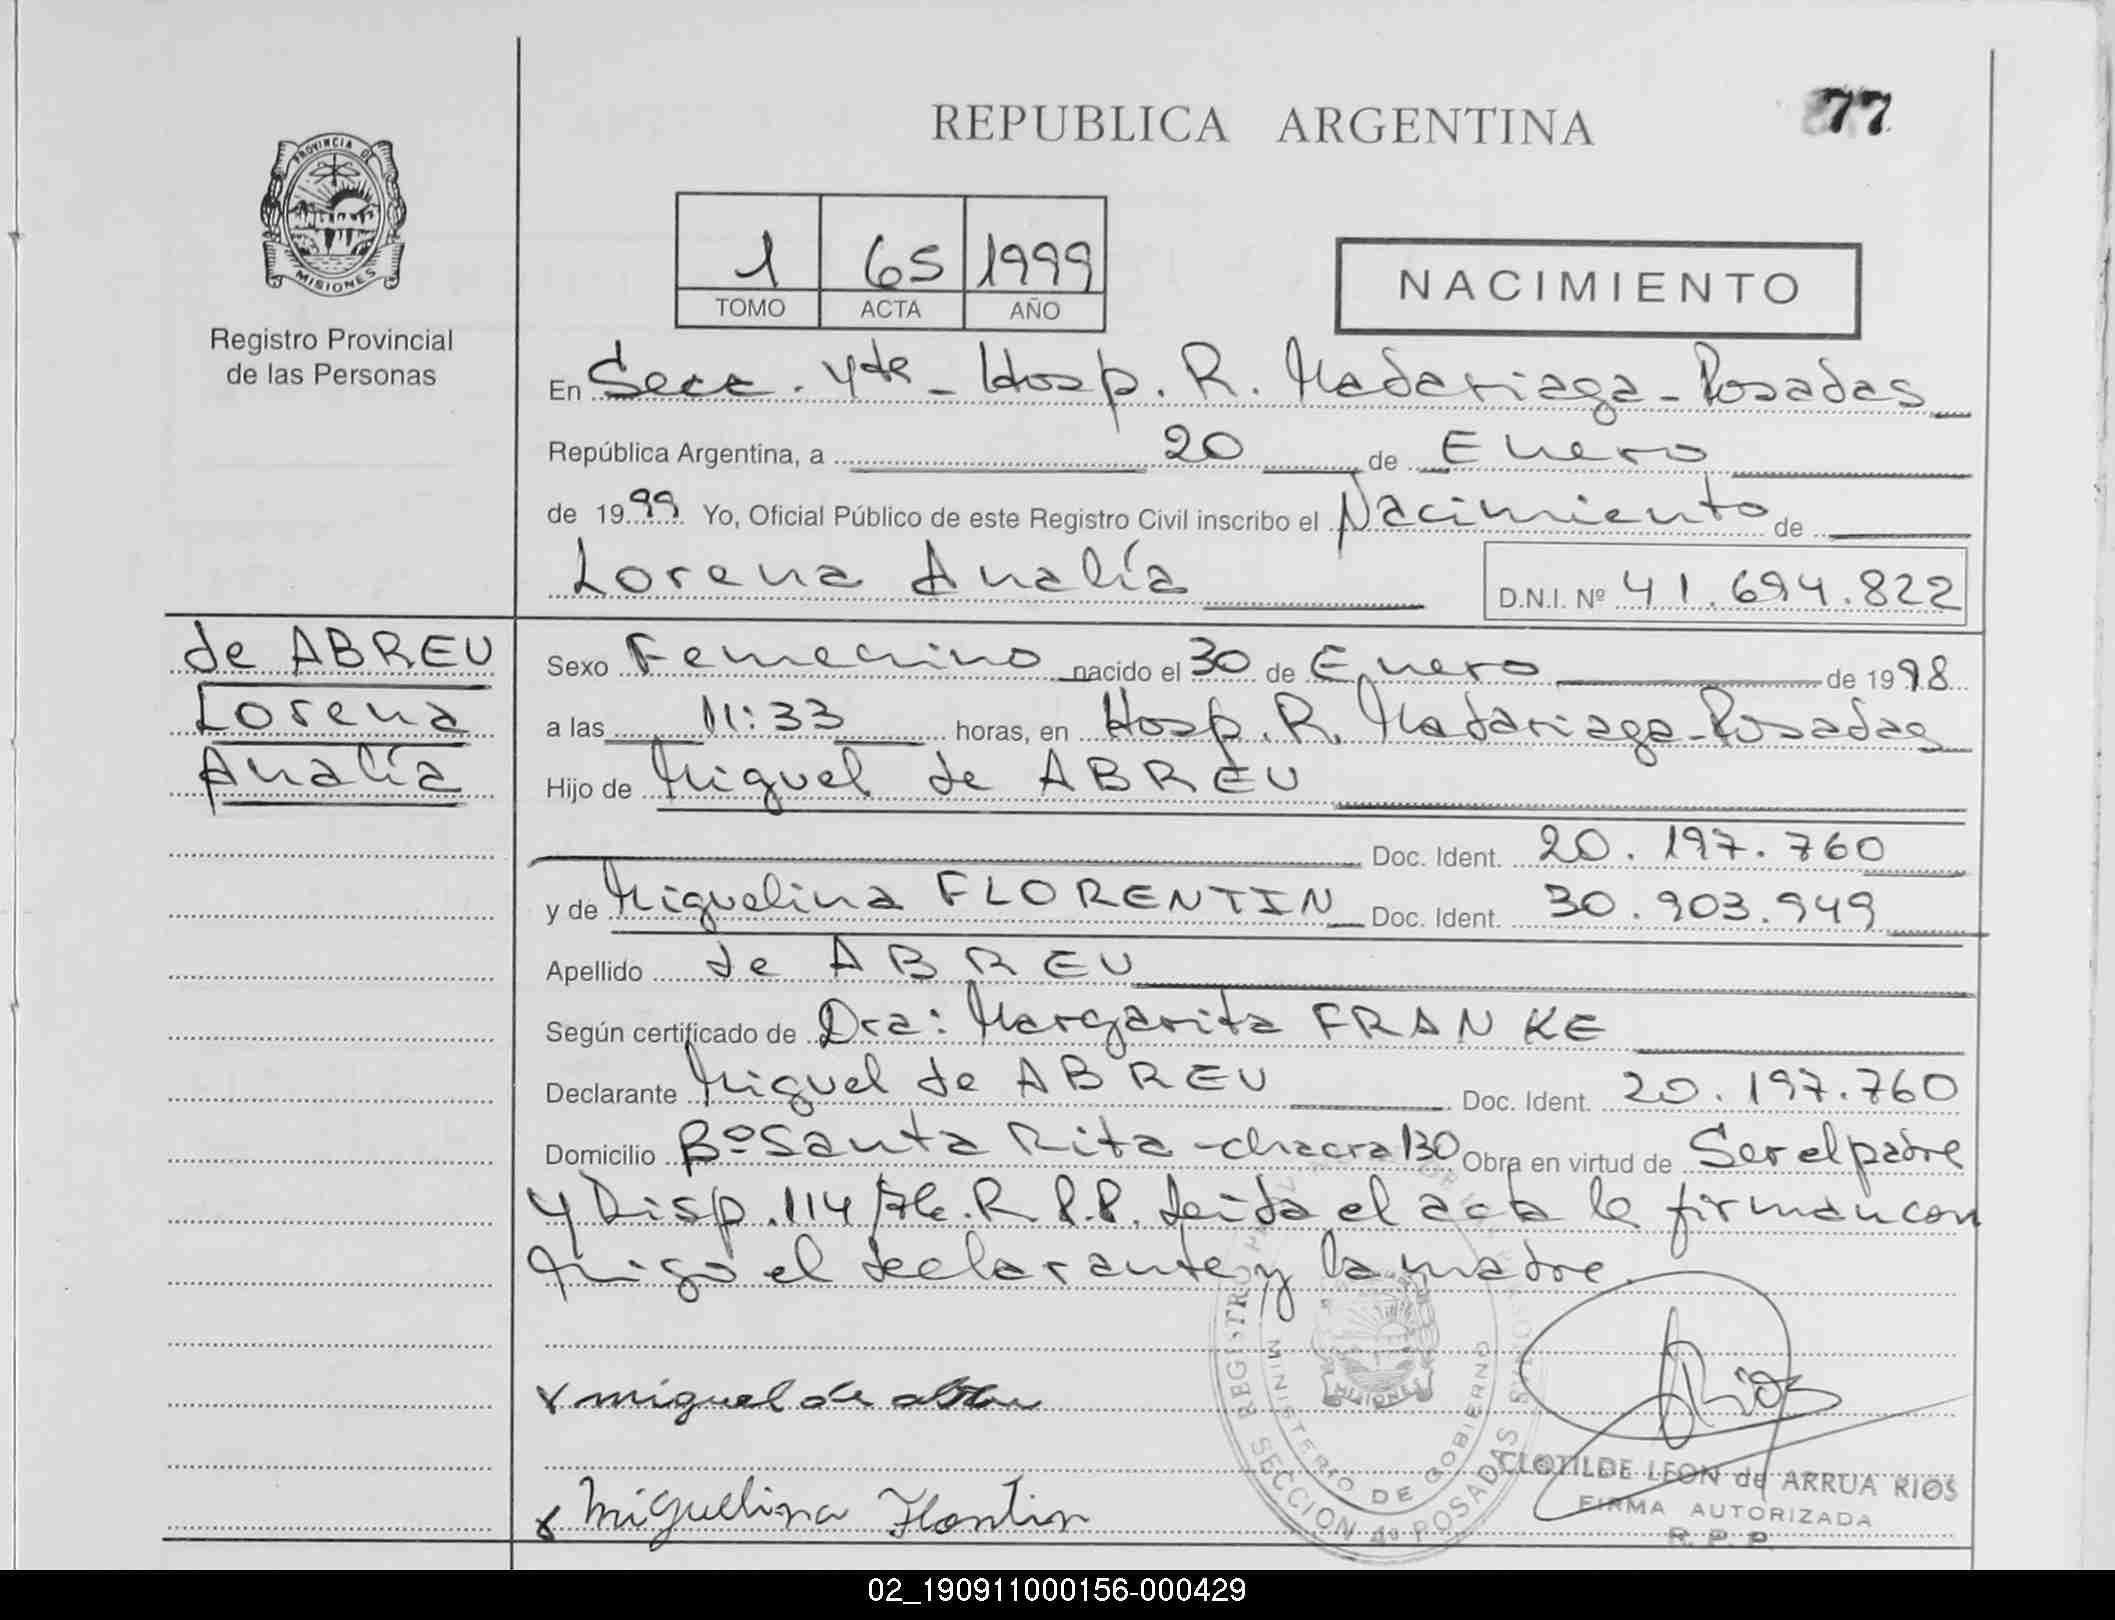 REPUBLICA ARGENTINA
77
PROVINCIA DE
MISIONES
Registro Provincial
de las Personas
1 65 1999
TOMO ACTA AÑO
NACIMIENTO
En Secc. 4ta - Hosp. R. Madariaga - Posadas
República Argentina, a 20 de Enero
de 1999 Yo, Oficial Público de este Registro Civil inscribo el Nacimiento de
Lorena Analía D.N.I. Nº 41.694.822
de ABREU
Lorena
Analía
Sexo Femenino nacido el 30 de Enero de 1998
a las 11:33 horas, en Hosp. R. Madariaga - Posadas
Hijo de Miguel de ABREU
Doc. Ident. 20.197.760
y de Miguelina FLORENTIN Doc. Ident. 30.903.949
Apellido de ABREU
Según certificado de Dra: Margarita FRANKE
Declarante Miguel de ABREU Doc. Ident. 20.197.760
Domicilio Bº Santa Rita - chacra 130 Obra en virtud de Ser el padre
y Disp. 114 R.P.P. Leída el acta la firman con
migo el declarante y la madre.
x miguel de abreu
x Miguelina Florentin
MINISTERIO DE GOBIERNO
SECCION 4ª POSADAS
MISIONES
CLOTILDE LEON de ARRUA RIOS
FIRMA AUTORIZADA
R. P. P.
02_190911000156-000429